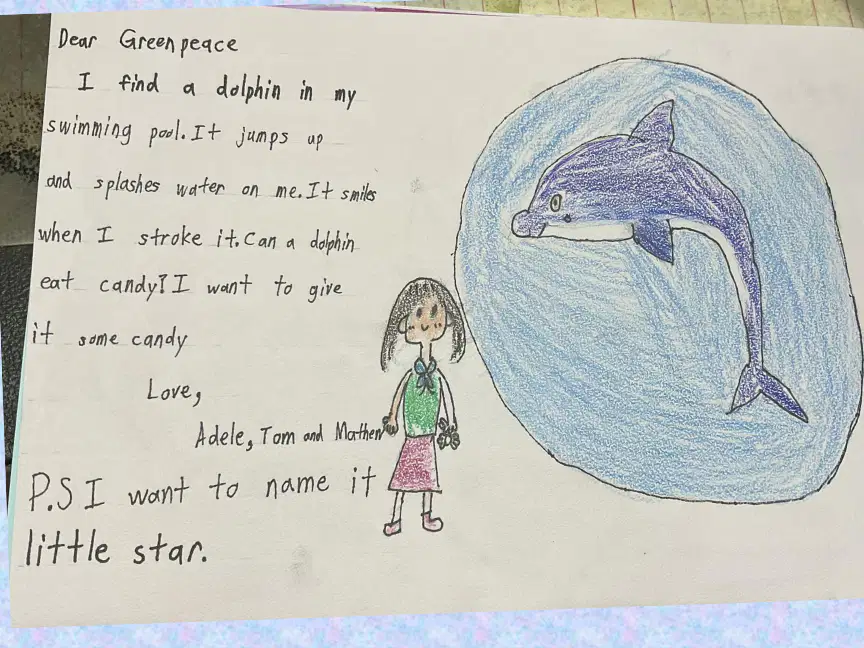 Dear Greenpeace
I find a dolphin in my
swimming pool. It jumps up
and splashes water on me. It smiles
when I stroke it. Can a dolphin
eat candy? I want to give
it some candy
Love,
Adele, Tom and Mathew
P.S I want to name it
little star.